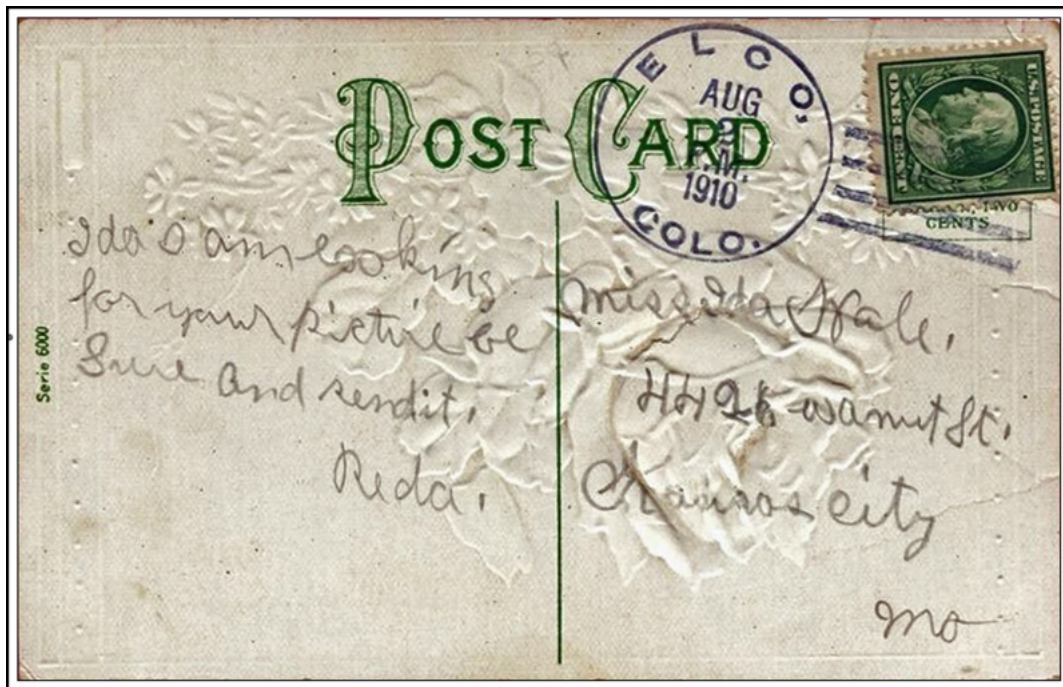 POST CARD
ELCO,
AUG
2
.M.
1910
COLO.
U.S. POSTAGE
ONE CENT
TWO
CENTS
Serie 6000
Ida I am looking
for your picture be
Sure and send it.
Reda.
Miss Ida Hale.
442 wanut St.
Kansas city
Mo